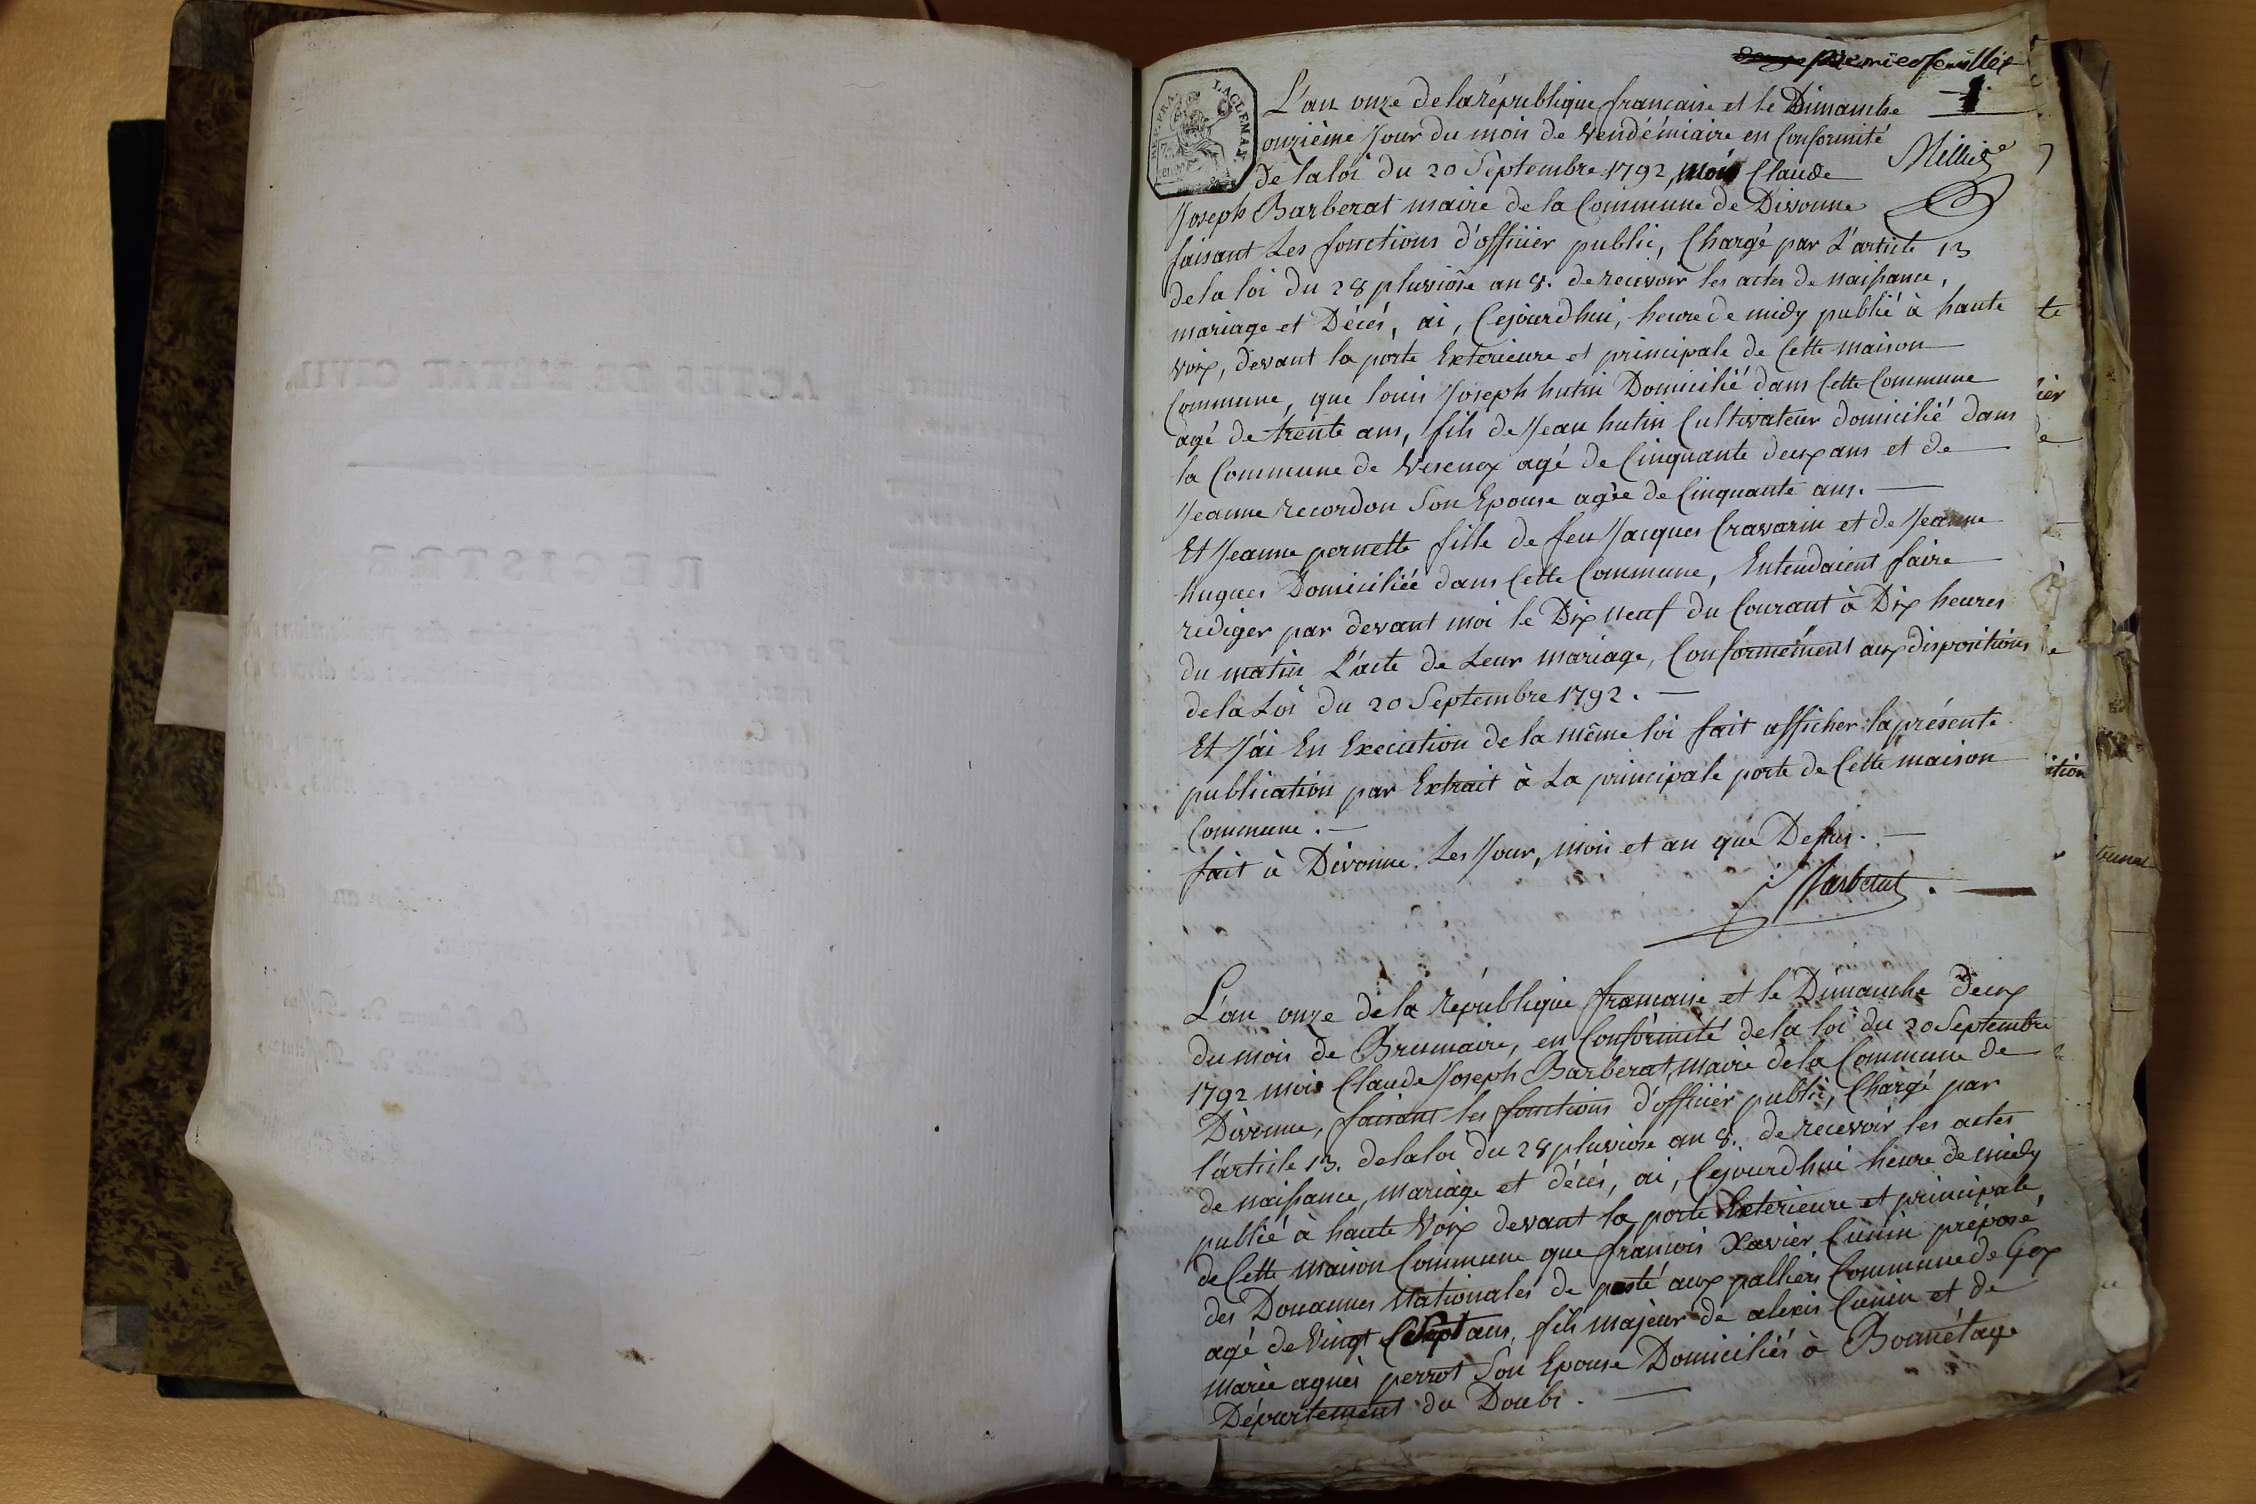 premier feuillet
1.
L'an onze de la république francaise et le Dimanche
onzième Jour du mois de Vendémiaire en Conformité
de la loi du 20 Septembre 1792, moi Claude
Joseph Barberat maire de la Commune de Divonne
faisant Les fonctions d'officier public, Chargé par L'article 13
de la loi du 28 pluviôse an 8. de recevoir les actes de naissance,
mariage et Décés, ai, Cejourdhui, heure de midy publié à haute
Voix, devant la porte Exterieure et principale de Cette maison
Commune, que louis Joseph hutin Domicilié dans Cette Commune
agé de trente ans, fils de Jean hutin Cultivateur domicilié dans
la Commune de Vesenex agé de Cinquante deux ans et de
Jeanne recordon Son Epouse agée de Cinquante ans.
Et Jeanne pernette fille de feu Jacques Cravarin et de Jeanne
hugues Domiciliée dans Cette Commune, Entendaient faire
rediger par devant moi le Dix neuf du Courant à Dix heures
du matin L'acte de Leur mariage, Conformément aux dispositions
de la Loi du 20 Septembre 1792.
Et J'ai En Execution de la même loi fait afficher la présente
publication par Extrait à La principale porte de Cette maison
Commune.
fait à Divonne Les Jour, mois et an que Dessus.
Barberat
L'an onze de la République francaise et le Dimanche deux
du mois de Brumaire, en Conformité de la loi du 20 Septembre
1792 moi Claude Joseph Barberat, maire de la Commune de
Divonne, faisant les fonctions d'officier public, Chargé par
l'article 13. de la loi du 28 pluviose an 8. de recevoir les actes
de naissance, mariage et décés, ai, Cejourdhui heure de midy
publié à haute Voix devant la porte Exterieure et principale
de Cette maison Commune que francois Xavier Cunin préposé
des Douannes Nationales de posté aux palliers Commune de Gex
agé de Vingt Sept ans, fils majeur de alexis Cunin et de
marie agnès perrot Son Epouse Domiciliés à Bonnétage
Département du Doubs.